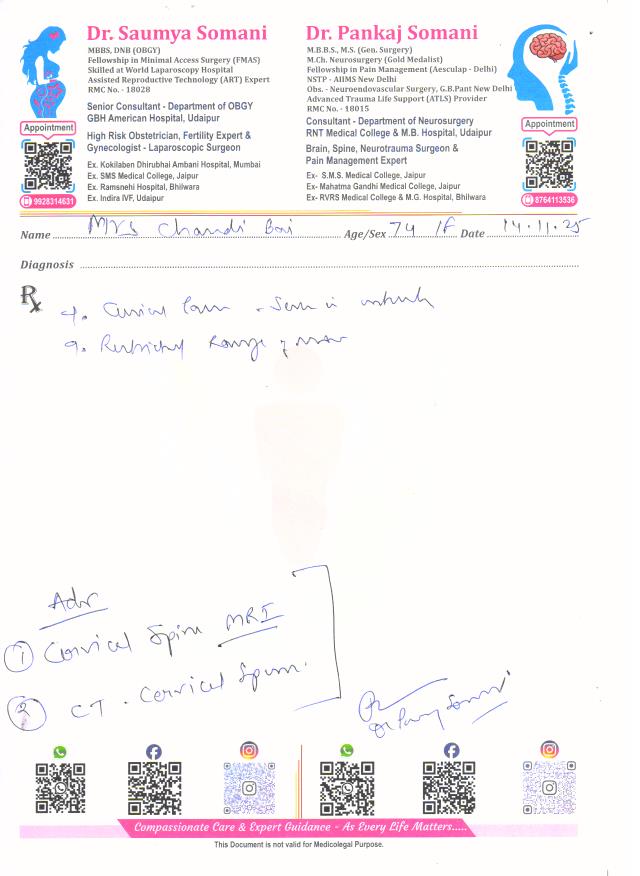 Dr. Saumya Somani
MBBS, DNB (OBGY)
Fellowship in Minimal Access Surgery (FMAS)
Skilled at World Laparoscopy Hospital
Assisted Reproductive Technology (ART) Expert
RMC No. - 18028
Senior Consultant - Department of OBGY
GBH American Hospital, Udaipur
High Risk Obstetrician, Fertility Expert &
Gynecologist - Laparoscopic Surgeon
Ex. Kokilaben Dhirubhai Ambani Hospital, Mumbai
Ex. SMS Medical College, Jaipur
Ex. Ramsnehi Hospital, Bhilwara
Ex. Indira IVF, Udaipur
Appointment
9928314631
Dr. Pankaj Somani
M.B.B.S., M.S. (Gen. Surgery)
M.Ch. Neurosurgery (Gold Medalist)
Fellowship in Pain Management (Aesculap - Delhi)
NSTP - AIIMS New Delhi
Obs. - Neuroendovascular Surgery, G.B.Pant New Delhi
Advanced Trauma Life Support (ATLS) Provider
RMC No. - 18015
Consultant - Department of Neurosurgery
RNT Medical College & M.B. Hospital, Udaipur
Brain, Spine, Neurotrauma Surgeon &
Pain Management Expert
Ex- S.M.S. Medical College, Jaipur
Ex- Mahatma Gandhi Medical College, Jaipur
Ex- RVRS Medical College & M.G. Hospital, Bhilwara
Appointment
8764113536
Name Mrs Chandi Bai Age/Sex 74 /F Date 14.11.25
Diagnosis
Rx
Range
Adv
① Cervical Spine MRI
② CT - Cervical Spine
Compassionate Care & Expert Guidance - As Every Life Matters.....
This Document is not valid for Medicolegal Purpose.